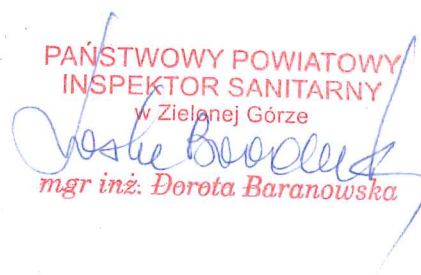 PAŃSTWOWY POWIATOWY
INSPEKTOR SANITARNY
w Zielonej Górze
mgr inż. Dorota Baranowska